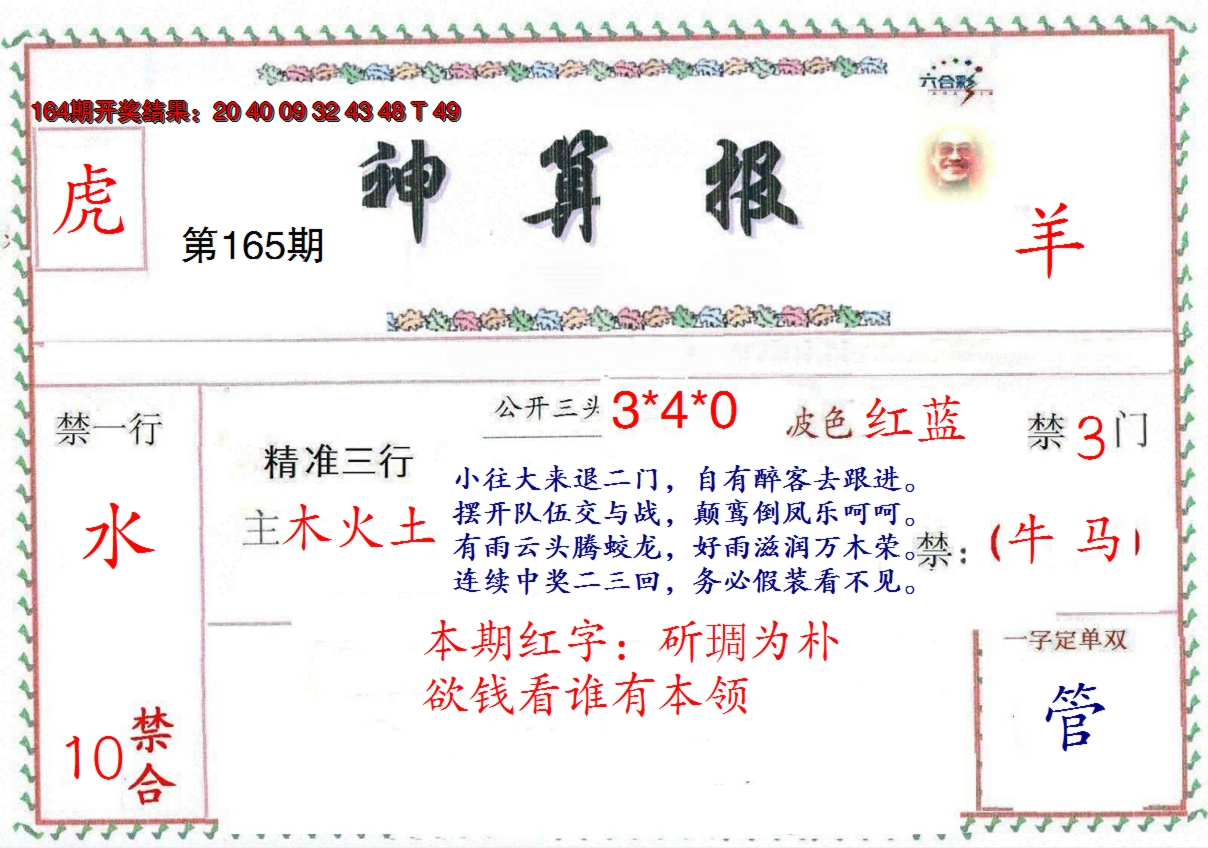 六合彩
164期开奖结果：20 40 09 32 43 48 T 49
神算报
虎
第165期
羊
公开三头 3*4*0
波色 红蓝
禁一行
禁3门
精准三行
主木火土
小往大来退二门，自有醉客去跟进。
摆开队伍交与战，颠鸾倒凤乐呵呵。
有雨云头腾蛟龙，好雨滋润万木荣。
连续中奖二三回，务必假装看不见。
水
禁：(牛 马)
本期红字：斫琱为朴
欲钱看谁有本领
一字定单双
管
10禁合